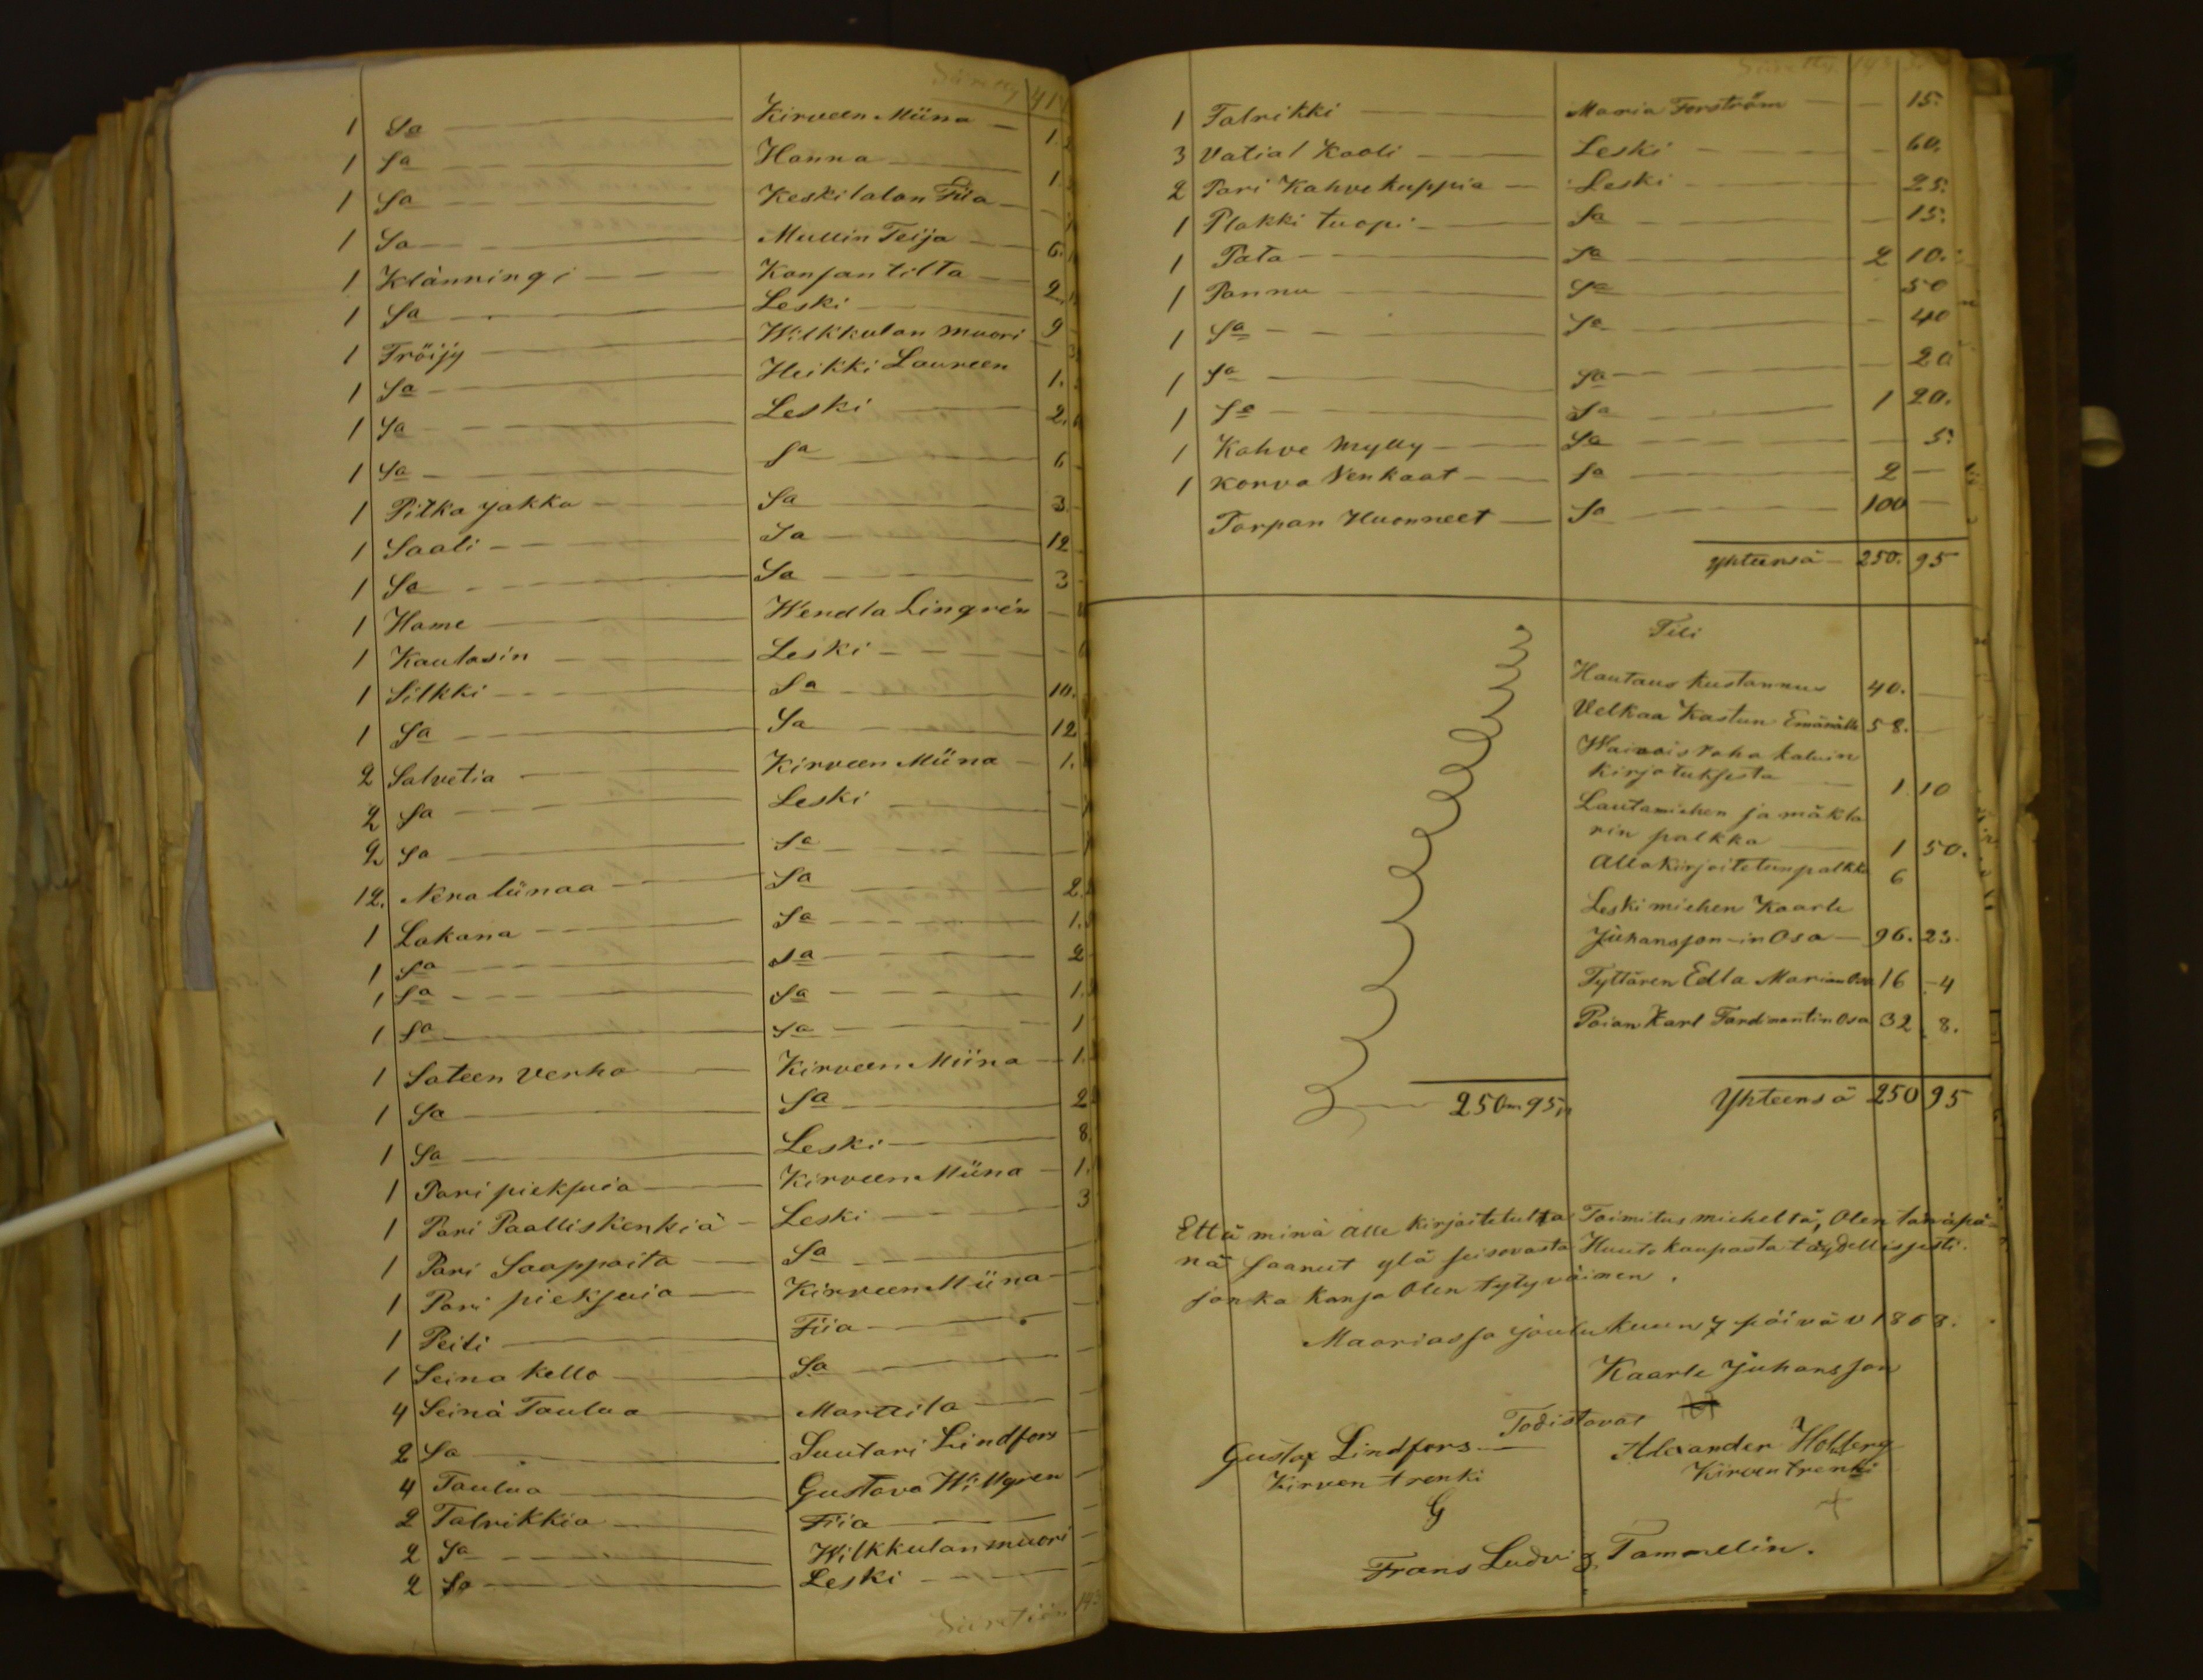 Siiretty 41
1 Sa Kirveen Miina 1.
1 Sa Hanna 1.
1 Sa Keskitalon Fiia
1 Sa Mullin Teija 6.
1 Klänningi Konsantilta 2.
1 Sa Leski 9
1 Tröijy Wilkkulan muori
1 Sa Heikki Laureen 1.
1 Sa Leski 2.
1 Sa Sa 6
1 Pitka jakka Sa 3.
1 Saali Sa 12
1 Sa Sa 3
1 Hame Wendla Lingrén
1 Kautasin Leski
1 Silkki Sa 10.
1 Sa Sa 12
2 Salvetia Kirveen Miina 1.
2 Sa Leski
2 Sa Sa
12. Nena liinaa Sa 2.
1 Lakana Sa 1.
1 Sa Sa 2
1 Sa Sa 1.
1 Sa Sa 1
1 Sateen Verho Kirveen Miina 1.
1 Sa Sa 2
1 Sa Leski 8
1 Pari pieksuia Kirveen Miina 1.
1 Pari Paalliskenkiä Leski 3
1 Pari Saappaita Sa
1 Pari pieksuia Kirveen Miina
1 Peili Fiia
1 Seina Kello Sa
4 Seinä Taulua Marttila
2 Sa Suutari Lindfors
4 Taulua Gustava Willgren
2 Talrikkia Fiia
2 Sa Wilkkulan muori
2 Sa Leski
Siiretään 143
Siiretty 143
1 Talrikki Maria Forström 15.
3 Vatial Kaali Leski 60.
2 Pari Kahve kuppia Leski 25.
1 Plakki tuopi Sa 15.
1 Pata Sa 2 10.
1 Pannu Sa 50
1 Sa Sa 40
1 Sa Sa 20
1 Sa Sa 1 20.
1 Kahve Mylly Sa 5.
1 Korva Renkaat Sa 2
Torpan Huonneet Sa 100
Yhteensä 250. 95
Tili
Hautaus kustannus 40.
Velkaa Kastun Emänälle 58.
Waivais raha kaluin
kirjotuksesta 1. 10
Lautamiehen ja mäkla
rin palkka 1 50.
Allakirjoitetun palkka 6
Leski miehen Kaarle
Juhansson-in Osa 96. 23.
Tyttären Edla Marian Osa 16 4
Poian Karl Fardinantin Osa 32 8.
250 m 95 p Yhteensä 250 95
Että minä alle kirjoitetulta Toimitus mieheltä, Olen tänäpä-
nä saanut ylä seisovasta Huuto kaupasta täydellisesti.
jonka kansa Olen tytyväinen.
Maariassa joulu kuun 7 päivänä 1868.
Kaarle Juhansson
Todistavat
Gustaf Lindfors Alexander Holberg
Kirven trenki Kirven trenki
G +
Frans Ludvig Tammelin.